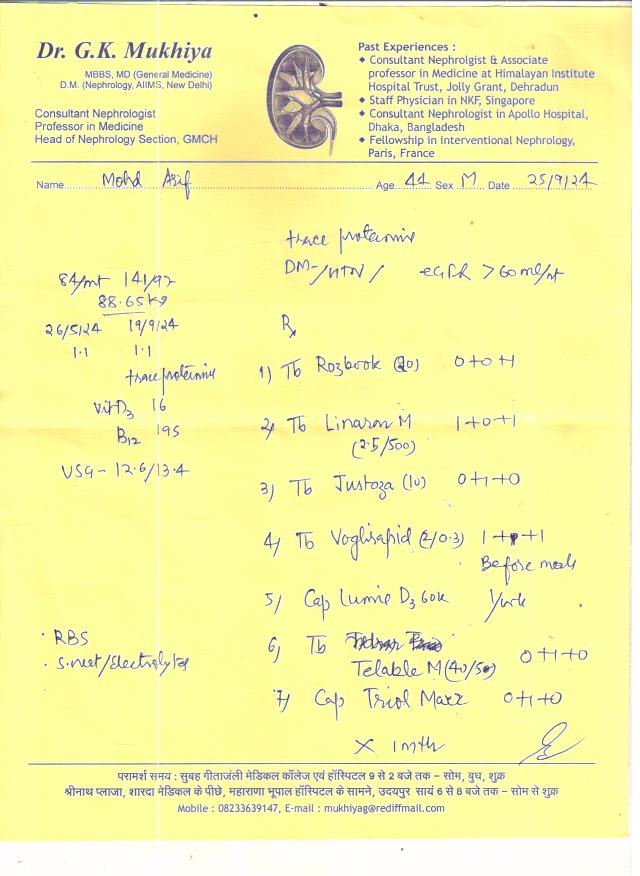 Dr. G.K. Mukhiya
MBBS, MD (General Medicine)
D.M. (Nephrology, AIIMS, New Delhi)
Consultant Nephrologist
Professor in Medicine
Head of Nephrology Section, GMCH
Past Experiences :
◆ Consultant Nephrolgist & Associate
professor in Medicine at Himalayan Institute
Hospital Trust, Jolly Grant, Dehradun
◆ Staff Physician in NKF, Singapore
◆ Consultant Nephrologist in Apollo Hospital,
Dhaka, Bangladesh
◆ Fellowship in interventional Nephrology,
Paris, France
Name Mohd Asif Age 44 Sex M Date 25/9/24
trace proteinuria
DM-/HTN/ eGFR >60 ml/mt
84/mt 141/92
88.65 kg
26/5/24 19/9/24
1.1 1.1
trace proteinuria
Vit D3 16
B12 195
USG - 12.6/13.4
· RBS
· S.creat/Electrolytes
Rx
1) Tb Rozbook (20) 0+0+1
2) Tb Linaran M 1+0+1
(2.5/500)
3) Tb Justoza (10) 0+1+0
4) Tb Voglirapid (2/0.3) 1+1+1
Before meals
5) Cap Lumie D3 60k 1/wk
6) Tb
Telable M (40/50) 0+1+0
7) Cap Triol Maxx 0+1+0
X 1 mth
परामर्श समय : सुबह गीताजंली मेडिकल कॉलेज एवं हॉस्पिटल 9 से 2 बजे तक – सोम, बुध, शुक्र
श्रीनाथ प्लाजा, शारदा मेडिकल के पीछे, महाराणा भूपाल हॉस्पिटल के सामने, उदयपुर सायं 6 से 8 बजे तक – सोम से शुक्र
Mobile : 08233639147, E-mail : mukhiyag@rediffmail.com